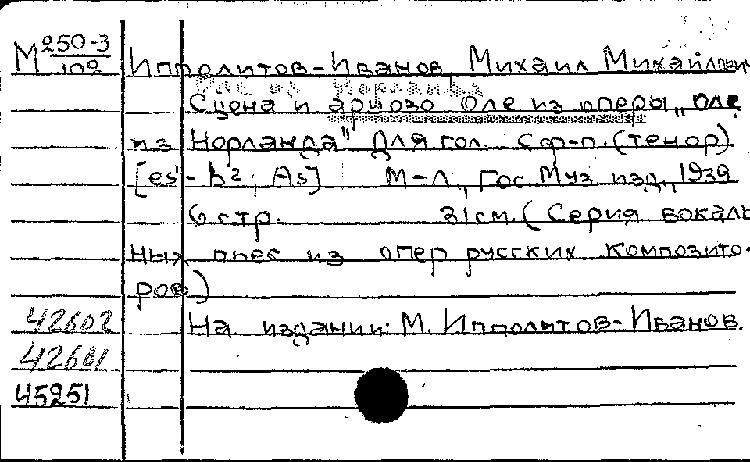 М 250-3
109
Ипполитов-Иванов Михаил Михайлович
Оле из Норланда
Сцена и ариозо Оле из оперы „Оле
из Норланда" Для гол. с ф-п. (тенор).
[es¹-b²; As] М-Л., Гос. Муз. изд., 1939
6 стр. 31 см. (Серия вокаль-
ных пьес из опер русских композито-
ров)
42602 На издании: М. Ипполитов-Иванов.
42601
45251